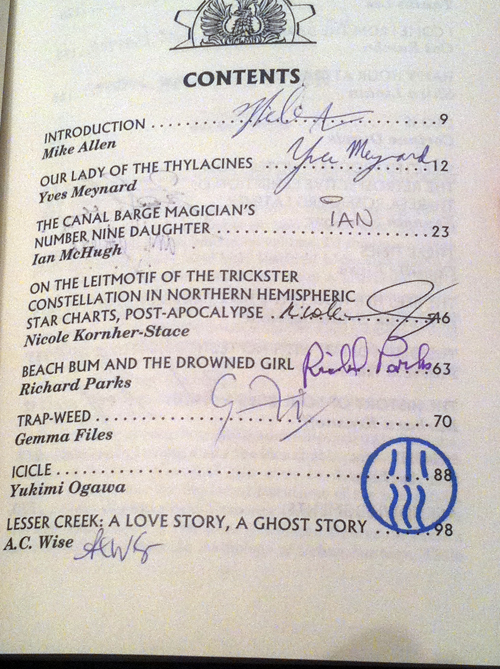 CONTENTS
INTRODUCTION ........... 9
Mike Allen
OUR LADY OF THE THYLACINES ........... 12
Yves Meynard
Yves Meynard
THE CANAL BARGE MAGICIAN'S
NUMBER NINE DAUGHTER ........... 23
IAN
Ian McHugh
ON THE LEITMOTIF OF THE TRICKSTER
CONSTELLATION IN NORTHERN HEMISPHERIC
STAR CHARTS, POST-APOCALYPSE ........... 46
Nicole
Nicole Kornher-Stace
BEACH BUM AND THE DROWNED GIRL ........... 63
Richard Parks
Richard Parks
TRAP-WEED ........... 70
Gemma Files
ICICLE ........... 88
Yukimi Ogawa
LESSER CREEK: A LOVE STORY, A GHOST STORY ........... 98
A.C. Wise